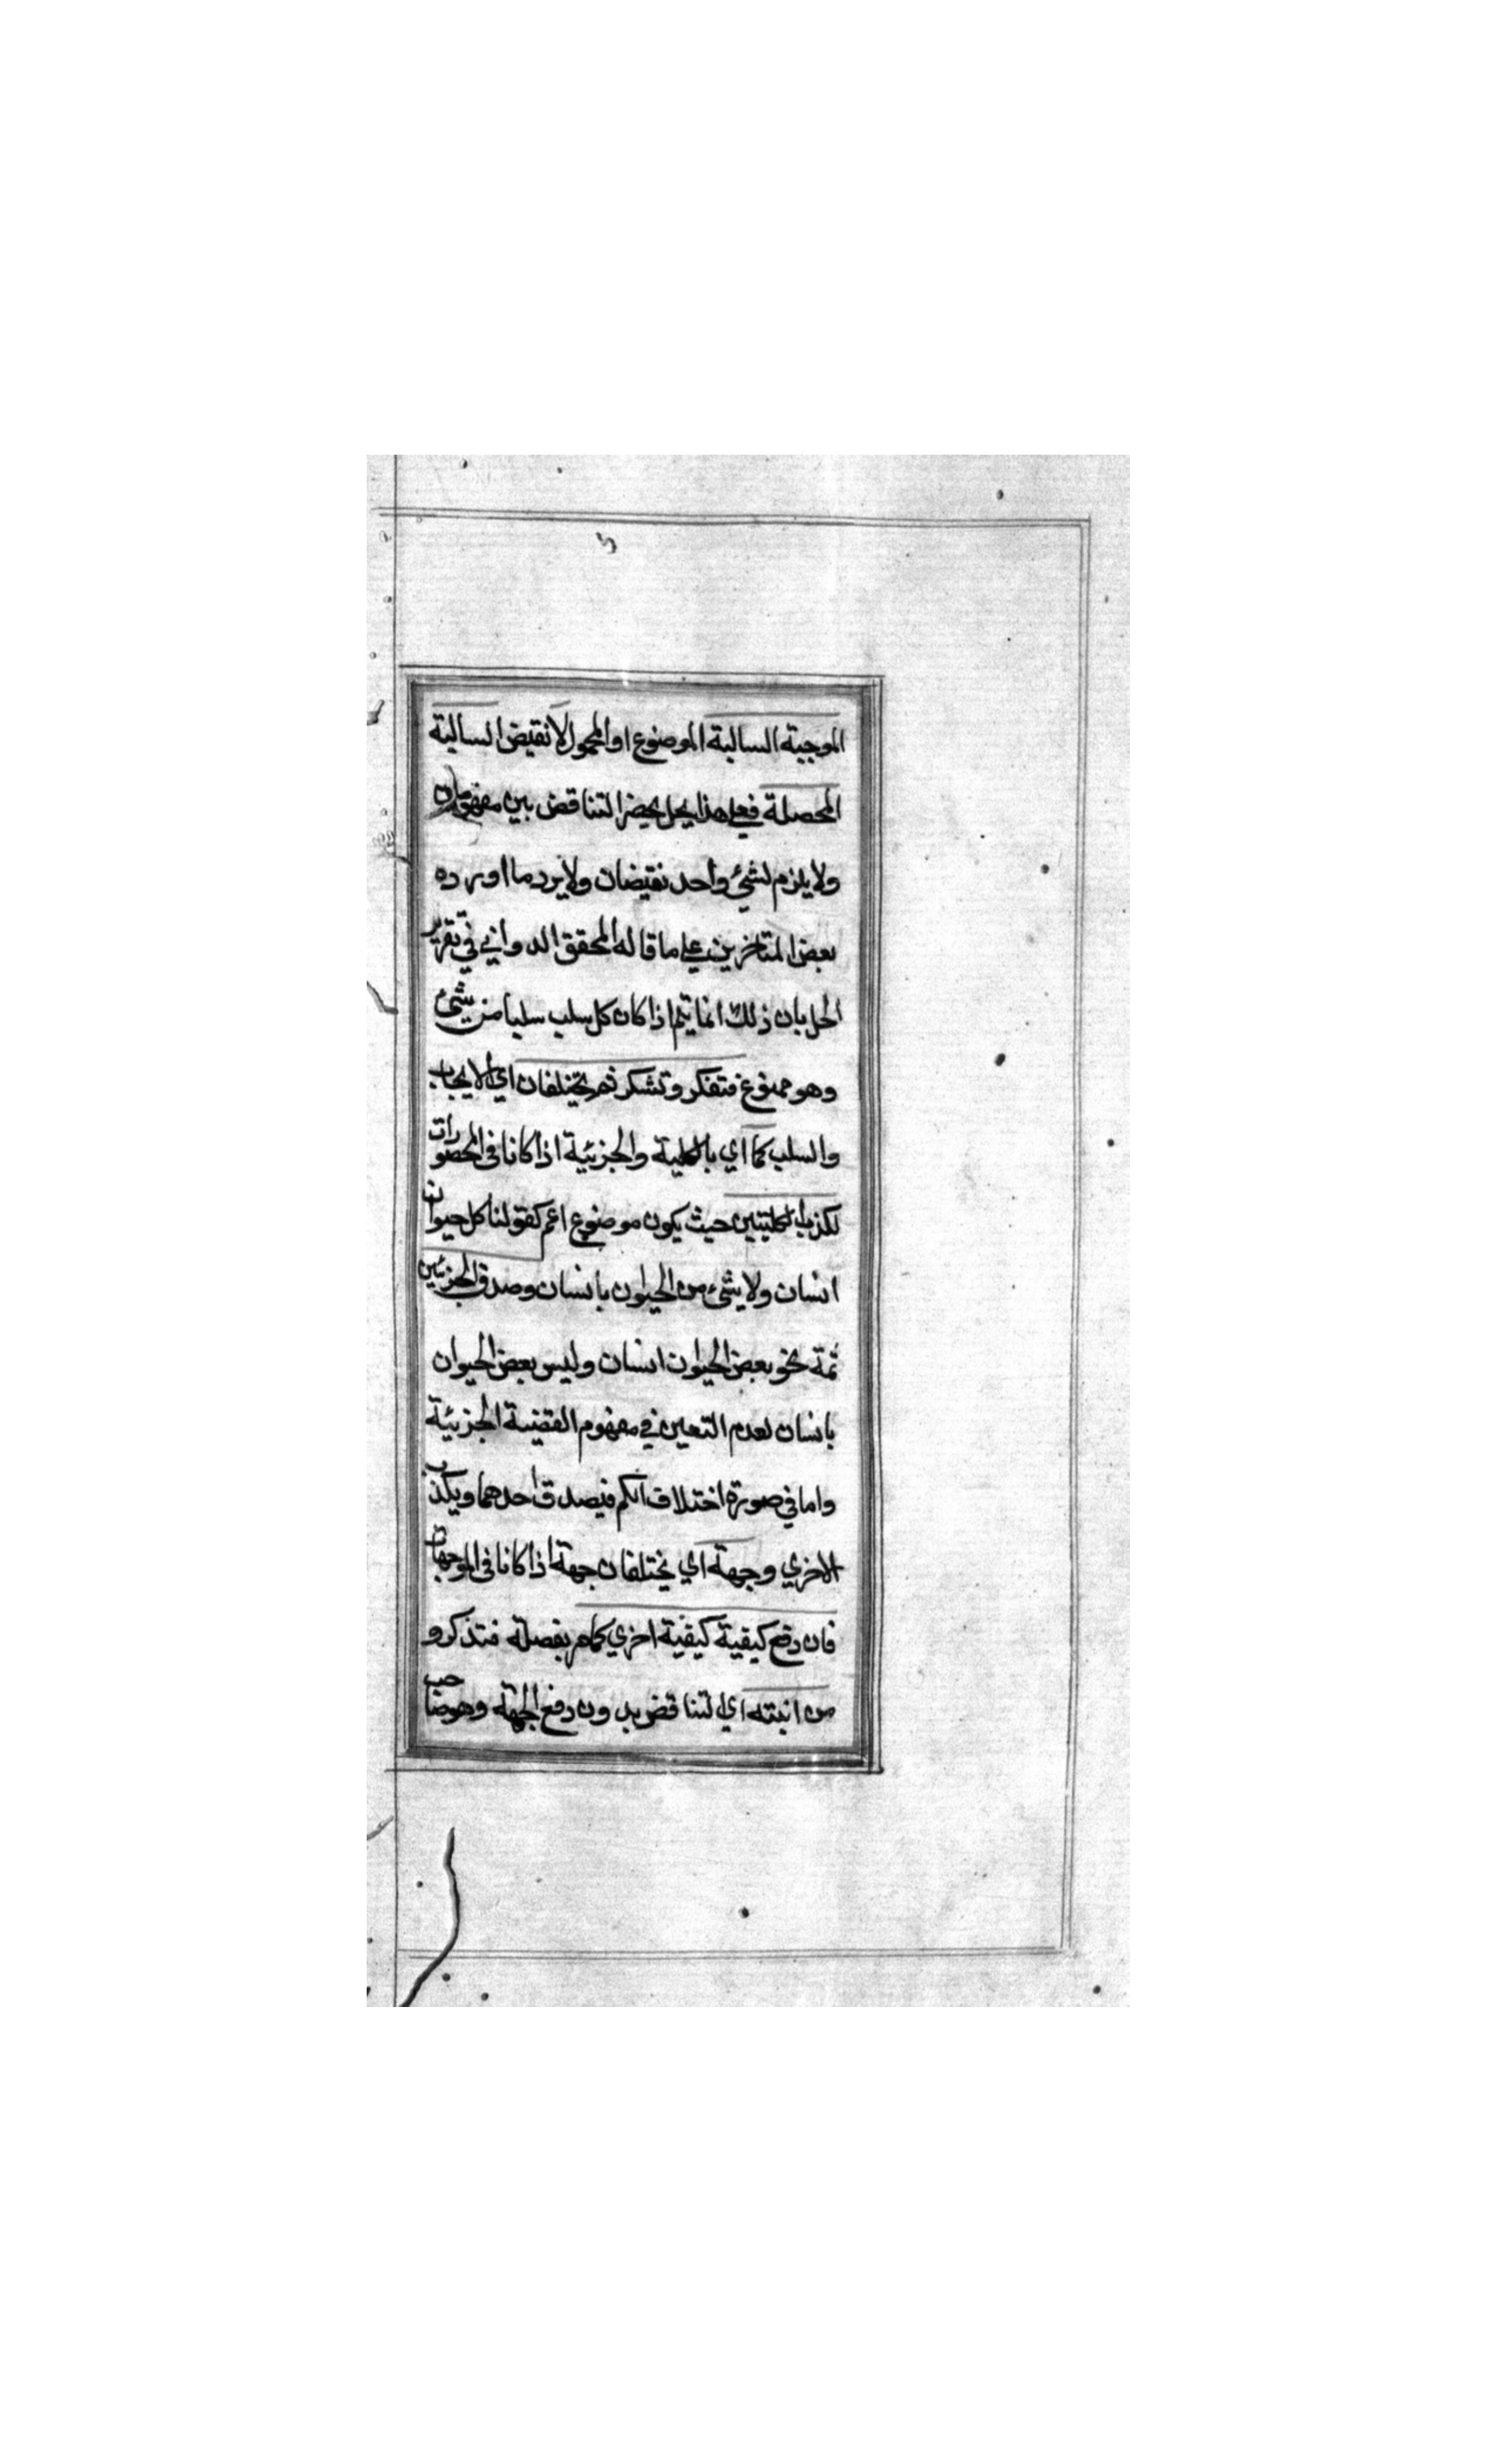 الموجبة السالبة الموضوع او المحمول لا نقيض السالبة
المحصلة فعلى هذا يحل يحيضر التناقض بين مفهومان
ولا يلزم لشئ واحد نقيضان ولا يرد ما اورده
بعض المتاخرين علي ما قاله المحقق الدواني في تقرير
الحل بان ذلك انما يتم اذا كان كل سلب سلبا من شئ
وهو ممنوع فتفكر وتشكر ثم يختلفان اي الايجاب
والسلب كما اي بالكلية والجزئية اذا كانا في المحصورات
لكذب الكليتين حيث يكون موضوع اعم كقولنا كل حيوان
انسان ولا شئ من الحيوان بانسان وصدق الجزئيتين
ثمة نحو بعض الحيوان انسان وليس بعض الحيوان
بانسان لعدم التعين في مفهوم القضية الجزئية
واما في صورة اختلاف الكم فيصدق احدهما ويكذب
الاخري وجهة اي يختلفان جهة اذا كانا في الموجهات
فان رفع كيفية كيفية اخري كما مر بفصله فتذكر و
من اثبته اي التناقض بدون رفع الجهة وهو صاحب